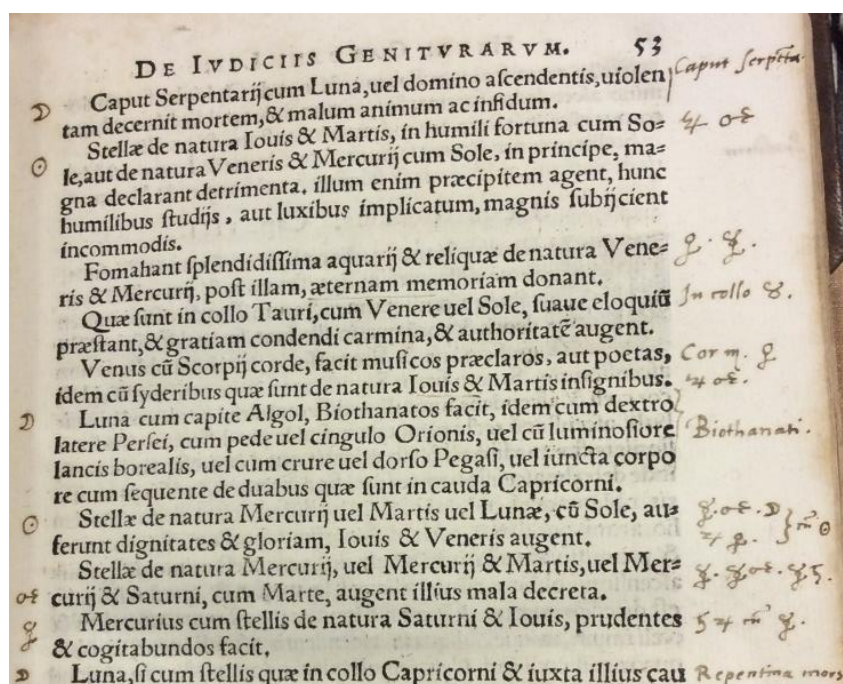 DE IVDICIIS GENITVRARVM. 53
Caput Serpentarij cum Luna, uel domino aſcendentis, uiolen Caput
☽ tam decernit mortem, & malum animum ac infidum.
Stellæ de natura Iouis & Martis, in humili fortuna cum So= ♃ ♂
☉ le, aut de natura Veneris & Mercurij cum Sole, in principe, ma=
gna declarant detrimenta. illum enim præcipitem agent, hunc
humilibus ſtudijs, aut luxibus implicatum, magnis ſubijcient
incommodis.
Fomahant ſplendidiſsima aquarij & reliquæ de natura Vene= ♀. ☿.
ris & Mercurij, poſt illam, æternam memoriam donant.
Quæ ſunt in collo Tauri, cum Venere uel Sole, ſuaue eloquiũ In collo ♉.
præſtant, & gratiam condendi carmina, & authoritatẽ augent.
Venus cũ Scorpij corde, facit muſicos præclaros, aut poetas, Cor ♏. ♀
idem cũ ſyderibus quæ ſunt de natura Iouis & Martis inſignibus. ♃ ♂.
☽ Luna cum capite Algol, Biothanatos facit, idem cum dextro
latere Perſei, cum pede uel cingulo Orionis, uel cũ luminoſiore Biothanati.
lancis borealis, uel cum crure uel dorſo Pegaſi, uel iuncta corpo
re cum ſequente de duabus quæ ſunt in cauda Capricorni.
☉ Stellæ de natura Mercurij uel Martis uel Lunæ, cũ Sole, au= ☿. ♂. ☽
ferunt dignitates & gloriam, Iouis & Veneris augent. ♃ ♀. } cũ ☉
Stellæ de natura Mercurij, uel Mercurij & Martis, uel Mer= ☿. ☿♂. ☿♄.
♂ curij & Saturni, cum Marte, augent illius mala decreta.
☿ Mercurius cum ſtellis de natura Saturni & Iouis, prudentes ♄ ♃ cũ ☿.
& cogitabundos facit.
☽ Luna, ſi cum ſtellis quæ in collo Capricorni & iuxta illius cau Repentina mors